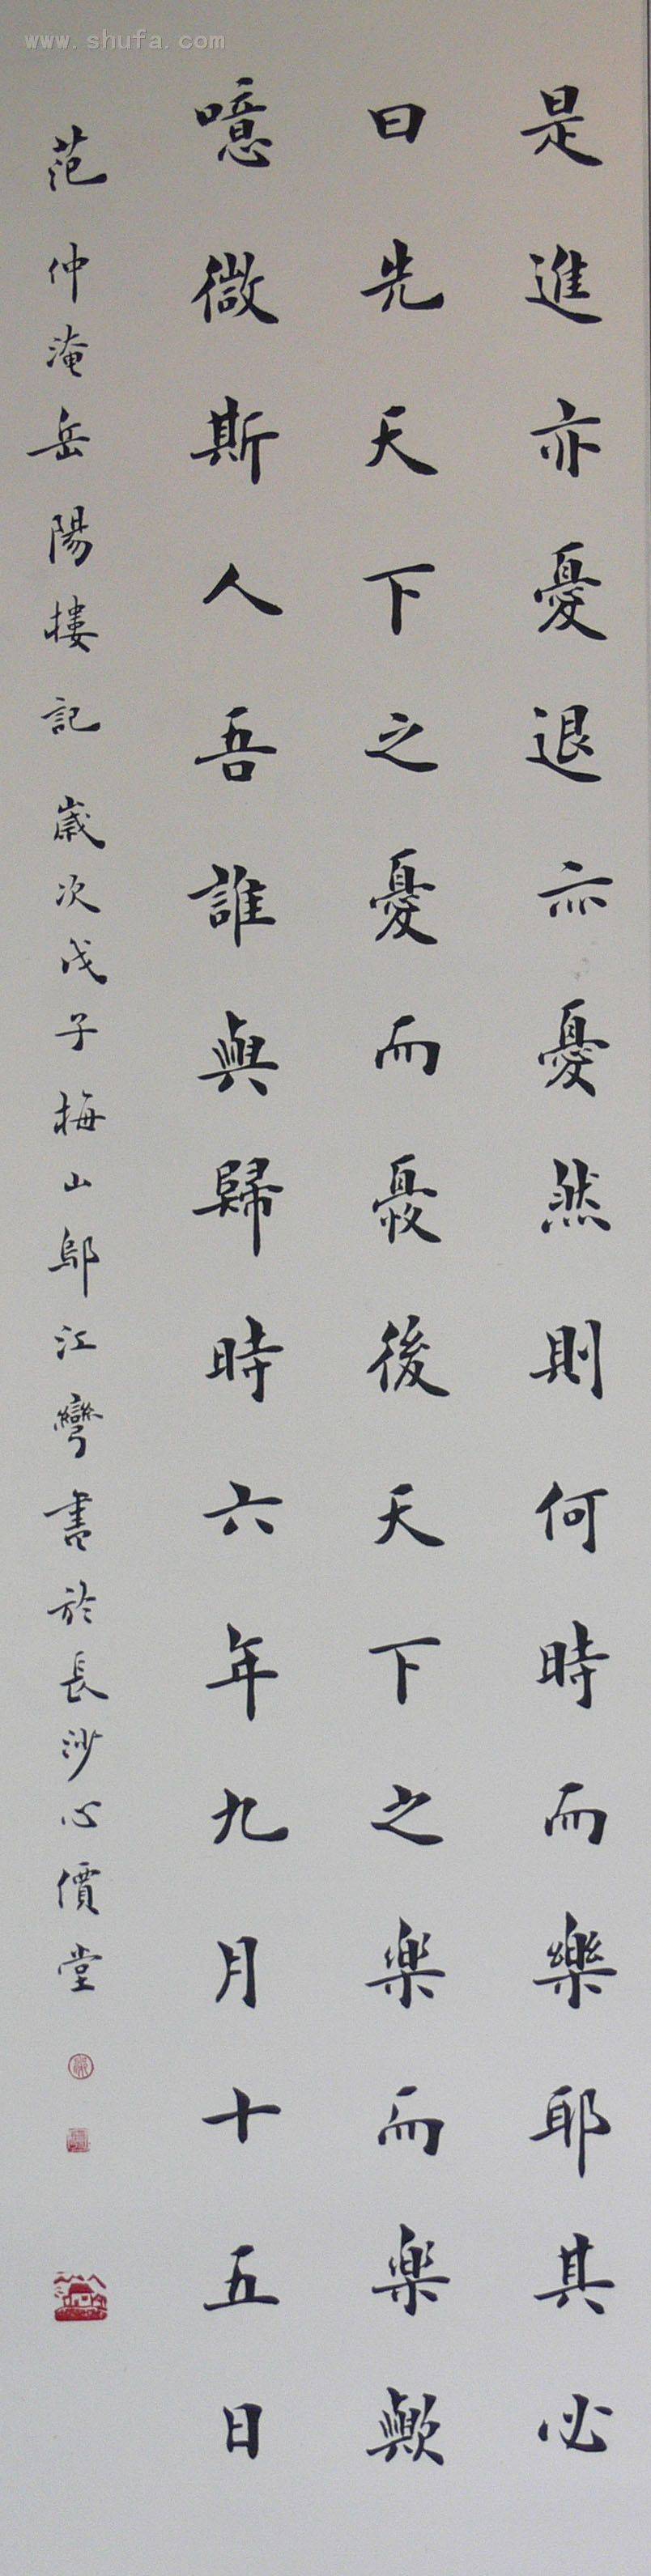 www.shufa.com
是進亦憂退亦憂然則何時而樂耶其必
曰先天下之憂而憂後天下之楽而楽歟
噫微斯人吾誰與歸時六年九月十五日
范仲淹岳陽楼記 歲次戊子梅山鄔江彎書於長沙心價堂